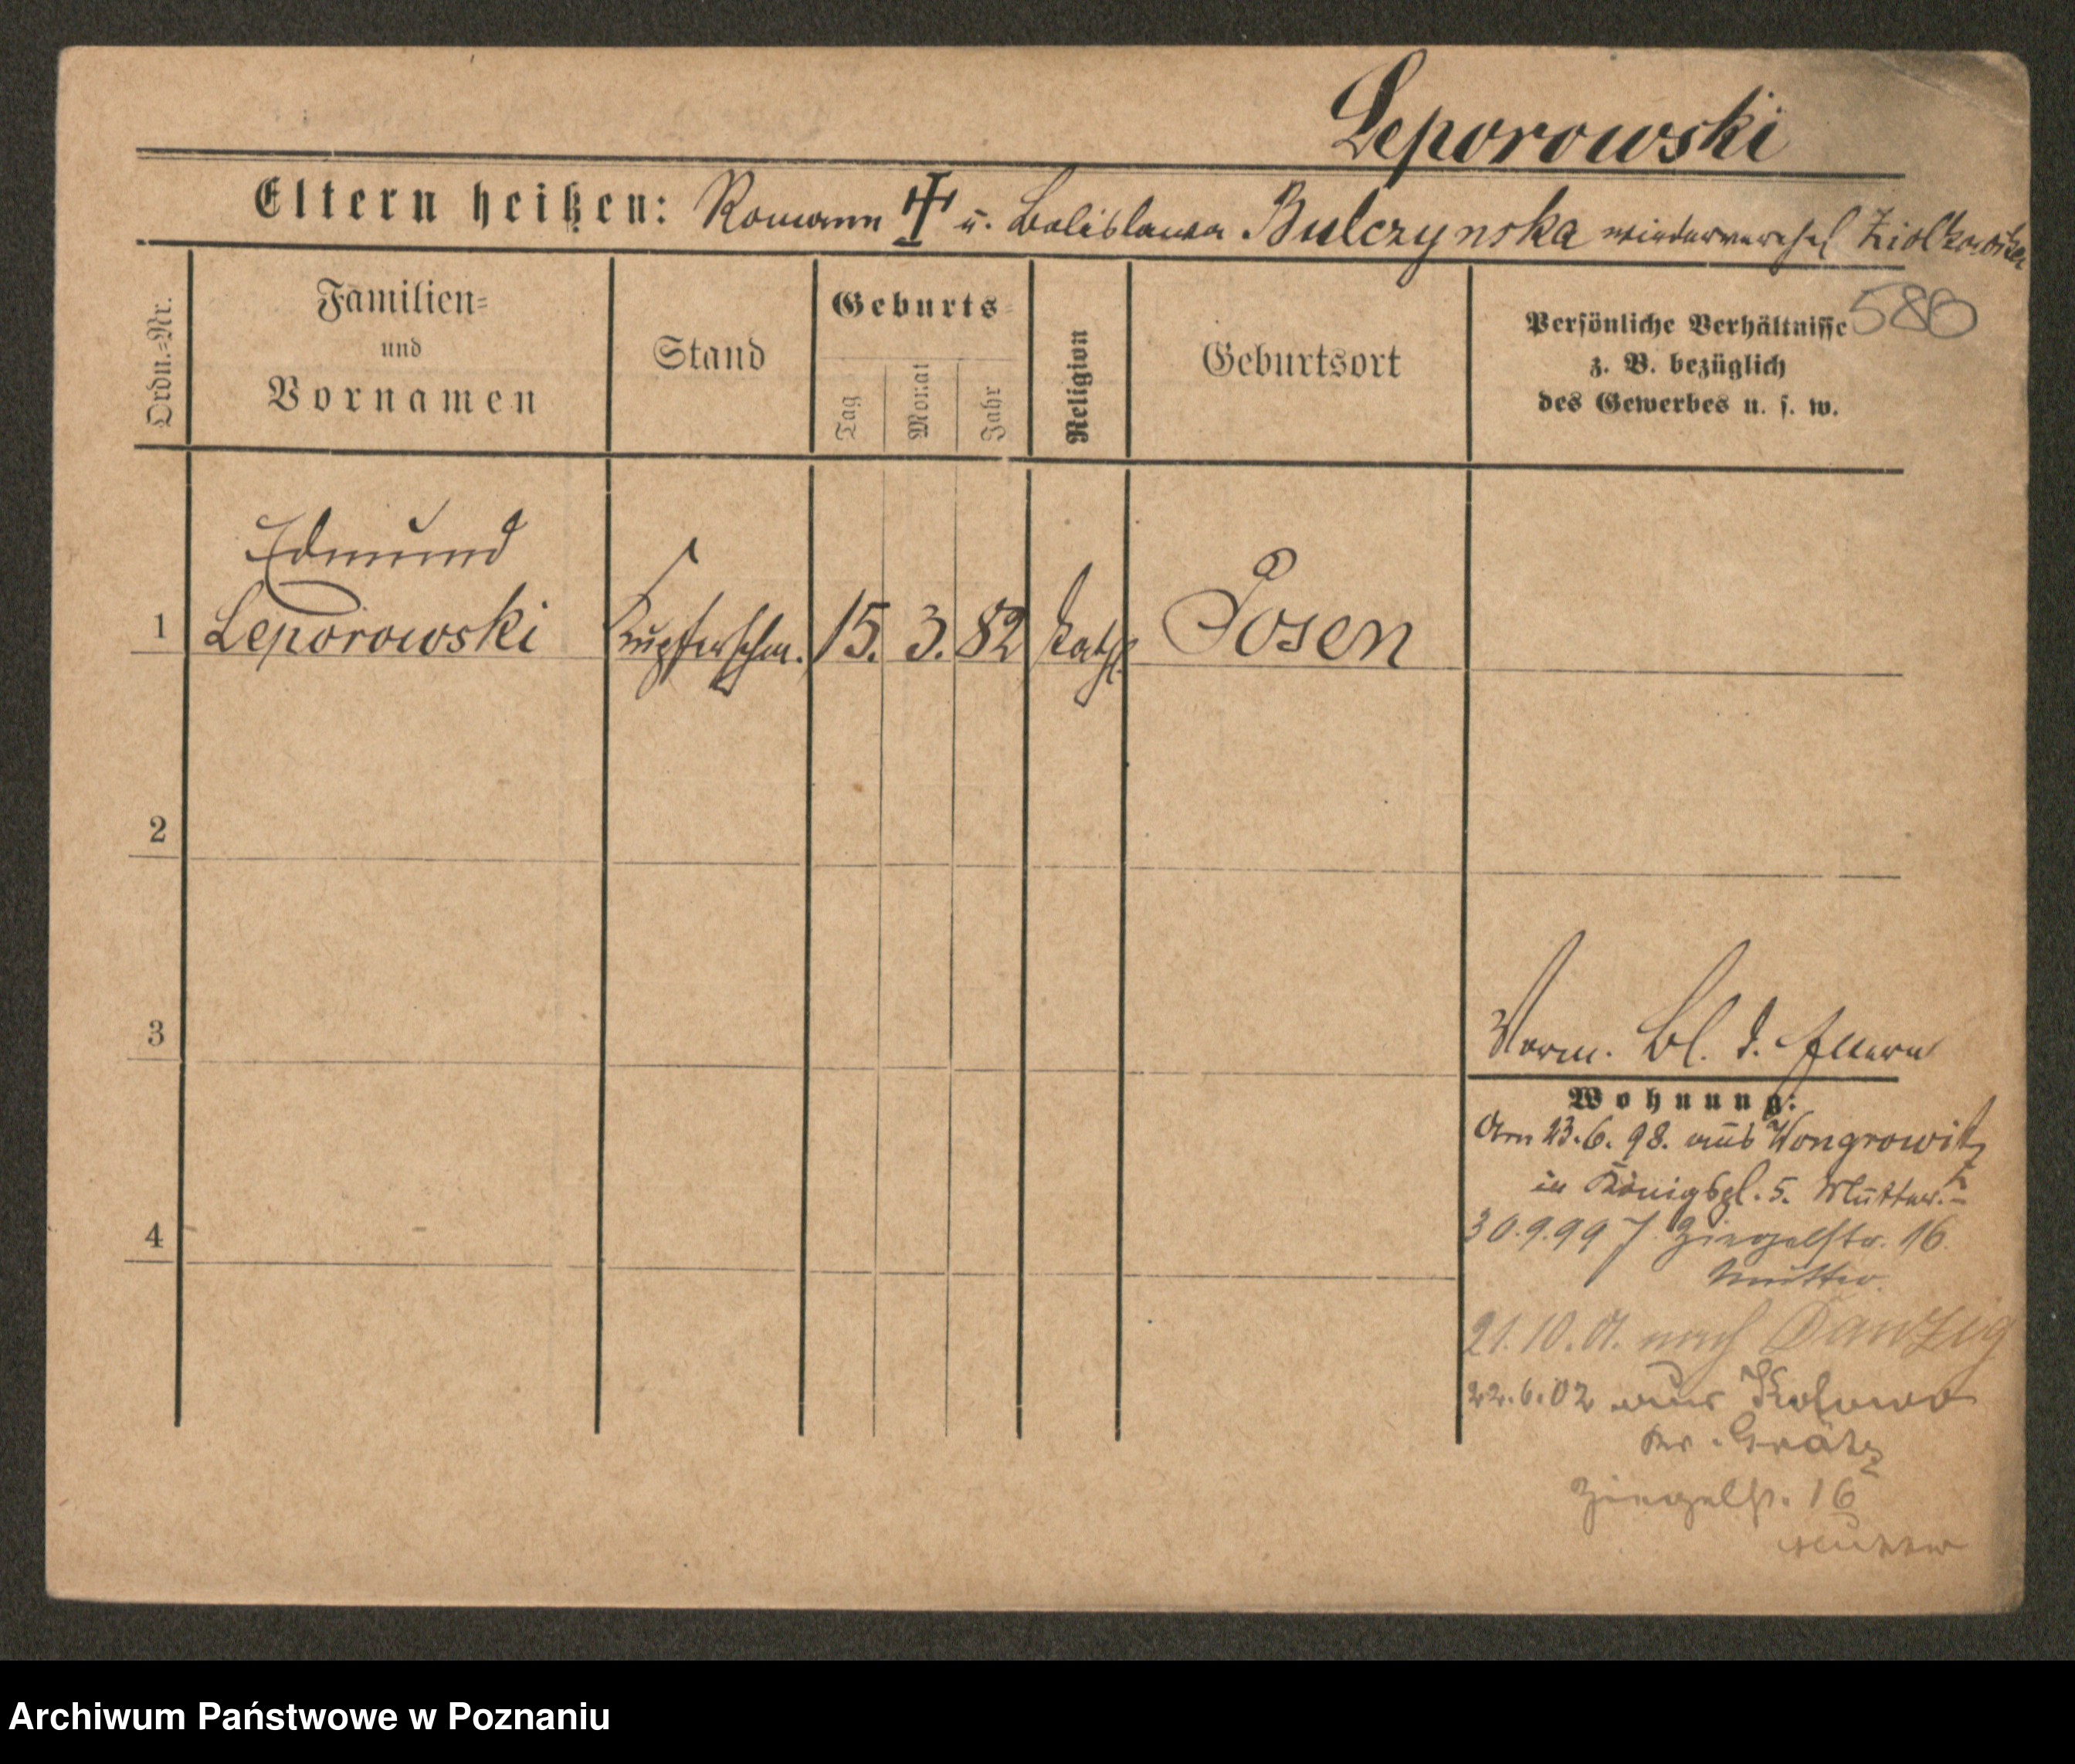 Leporowski
Eltern heißen: Romann u. Boleslawa Bulczynska wiederverehel. Ziolkowska
580
Ordn.-Nr.
Familien-
und
Vornamen
Stand
Geburts-
Tag
Monat
Jahr
Religion
Geburtsort
Persönliche Verhältnisse
z. B. bezüglich
des Gewerbes u. s. w.
Edmund
1 Leporowski Kupferschm. 15. 3. 82 kathl. Posen
2
3
Bl. d.
Wohnung:
Am 23.6.98. aus Wongrowitz
in Königspl. 5. Mutter.
4
30.9.99 Ziegelstr. 16
Mutter.
21.10.01. nach Danzig
22.6.02 aus
Kr. Grätz
Ziegelstr. 16
Mutter
Archiwum Państwowe w Poznaniu